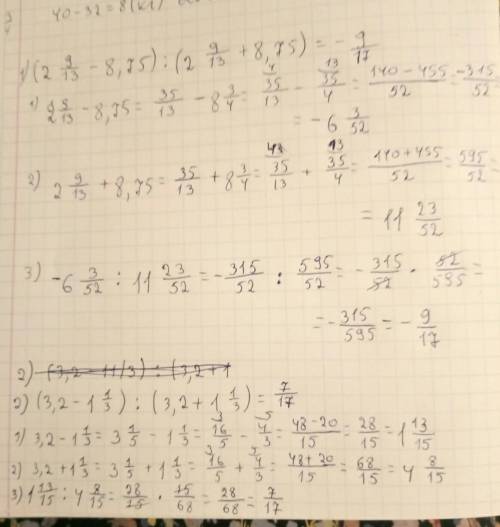 40 - 32 = 8 (кг)
1) (2 9/13 - 8,75) : (2 9/13 + 8,75) = - 9/17
1) 2 9/13 - 8,75 = 35/13 - 8 3/4 = 35/13 - 35/4 = (140 - 455)/52 = -315/52 =
= -6 3/52
2) 2 9/13 + 8,75 = 35/13 + 8 3/4 = 35/13 + 35/4 = (140 + 455)/52 = 595/52 =
= 11 23/52
3) -6 3/52 : 11 23/52 = - 315/52 : 595/52 = - 315/52 · 52/595 =
= - 315/595 = - 9/17
2) (3,2 - 1 1/3) : (3,2 + 1
2) (3,2 - 1 1/3) : (3,2 + 1 1/3) = 7/17
1) 3,2 - 1 1/3 = 3 1/5 - 1 1/3 = 16/5 - 4/3 = (48 - 20)/15 = 28/15 = 1 13/15
2) 3,2 + 1 1/3 = 3 1/5 + 1 1/3 = 16/5 + 4/3 = (48 + 20)/15 = 68/15 = 4 8/15
3) 1 13/15 : 4 8/15 = 28/15 · 15/68 = 28/68 = 7/17